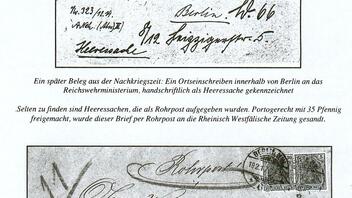 No. 323/12.19.
Berlin. W. 66
Heeressache
8/12 Leipzigerstr. 5
Ein später Beleg aus der Nachkriegszeit: Ein Ortseinschreiben innerhalb von Berlin an das
Reichswehrministerium, handschriftlich als Heeressache gekennzeichnet
.Selten zu finden sind Heeressachen, die als Rohrpost aufgegeben wurden. Portogerecht mit 35 Pfennig
freigemacht, wurde dieser Brief per Rohrpost an die Rheinisch Westfälische Zeitung gesandt.
Rohrpost